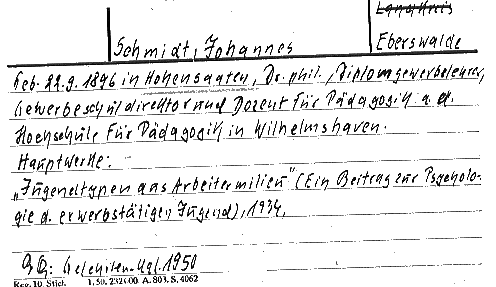 Landkreis
Schmidt, Johannes
Eberswalde
Geb. 22.9.1896 in Hohensaaten, Dr. phil., Diplomgewerbelehrer,
Gewerbeschuldirektor und Dozent für Pädagogik a. d.
Hochschule für Pädagogik in Wilhelmshaven.
Hauptwerke:
„Jugendtypen aus Arbeitermilieu" (Ein Beitrag zur Psycholo-
gie d. erwerbstätigen Jugend), 1934.
Gelehrten-Kal. 1950
Reg. 10. Stich. A. 803. S. 4062